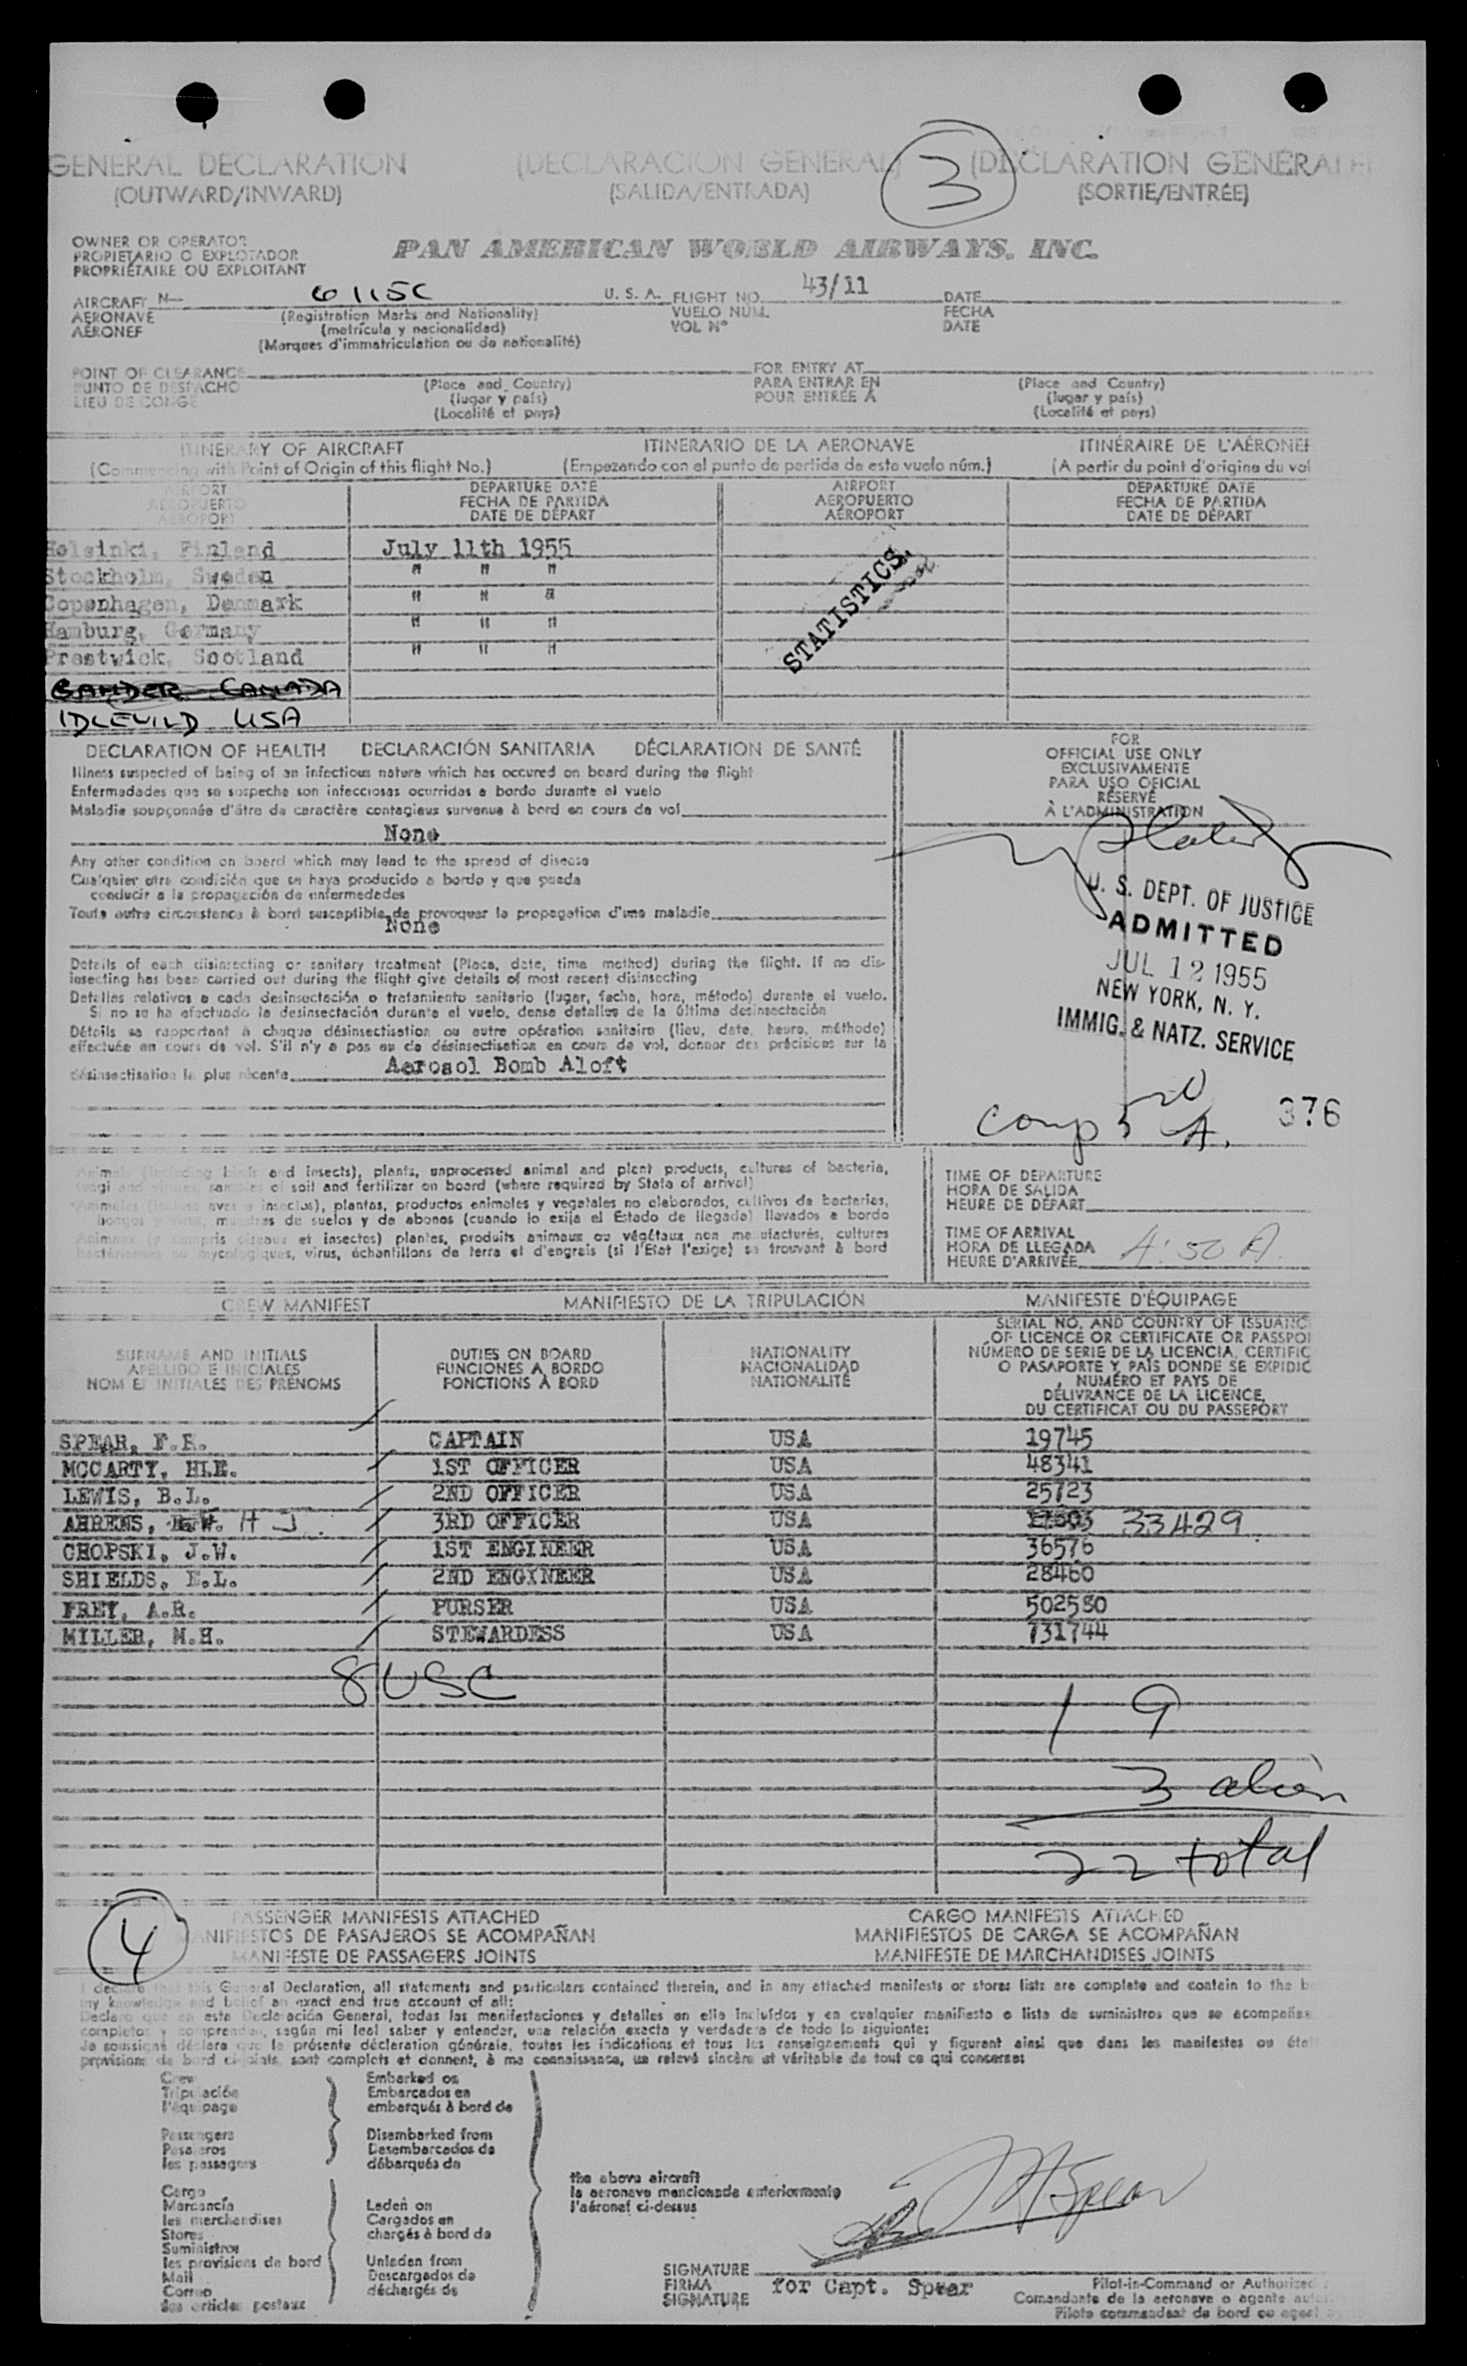 GENERAL DECLARATION (DECLARACION GENERAL) 3 (DÉCLARATION GÉNÉRALE
(OUTWARD/INWARD) (SALIDA/ENTRADA) (SORTIE/ENTRÉE)
OWNER OR OPERATOR
PROPIETARIO O EXPLOTADOR
PROPRIÉTAIRE OU EXPLOITANT
PAN AMERICAN WORLD AIRWAYS, INC.
AIRCRAFT N— 6115C U. S. A. FLIGHT NO. 43/11 DATE
AERONAVE (Registration Marks and Nationality) VUELO NUM. FECHA
AÉRONEF (matrícula y nacionalidad) VOL Nº DATE
(Marques d'immatriculation ou de nationalité)
POINT OF CLEARANCE FOR ENTRY AT
PUNTO DE DESPACHO (Place and Country) PARA ENTRAR EN (Place and Country)
LIEU DE CONGÉ (lugar y país) POUR ENTRÉE À (lugar y país)
(Localité et pays) (Localité et pays)
ITINERARY OF AIRCRAFT ITINERARIO DE LA AERONAVE ITINÉRAIRE DE L'AÉRONEF
(Commencing with Point of Origin of this flight No.) (Empezando con el punto de partida de este vuelo núm.) (A partir du point d'origine du vol
AIRPORT DEPARTURE DATE AIRPORT DEPARTURE DATE
AEROPUERTO FECHA DE PARTIDA AEROPUERTO FECHA DE PARTIDA
AÉROPORT DATE DE DÉPART AÉROPORT DATE DE DÉPART
Helsinki, Finland July 11th 1955
Stockholm, Sweden " " "
Copenhagen, Denmark " " "
Hamburg, Germany " " "
Prestwick, Scotland " " "
STATISTICS.
GANDER CANADA
IDLEWILD USA
DECLARATION OF HEALTH DECLARACIÓN SANITARIA DÉCLARATION DE SANTÉ
Illness suspected of being of an infectious nature which has occured on board during the flight
Enfermedades que se sospeche son infecciosas ocurridas a bordo durante el vuelo
Maladie soupçonnée d'être de caractère contagieux survenue à bord en cours de vol
None
Any other condition on board which may lead to the spread of disease
Cualquier otra condición que se haya producido a bordo y que pueda
conducir a la propagación de enfermedades
Toute autre circonstance à bord susceptible de provoquer la propagation d'une maladie
None
Details of each disinsecting or sanitary treatment (Place, date, time method) during the flight. If no dis-
insecting has been carried out during the flight give details of most recent disinsecting
Detalles relativos a cada desinsectación o tratamiento sanitario (lugar, fecha, hora, método) durante el vuelo.
Si no se ha efectuado la desinsectación durante el vuelo, dense detalles de la última desinsectación
Détails se rapportant à chaque désinsectisation ou autre opération sanitaire (lieu, date, heure, méthode)
effectuée en cours de vol. S'il n'y a pas eu de désinsectisation en cours de vol, donner des précisions sur la
désinsectisation la plus récente Aerosol Bomb Aloft
FOR
OFFICIAL USE ONLY
EXCLUSIVAMENTE
PARA USO OFICIAL
RÉSERVÉ
À L'ADMINISTRATION
U. S. DEPT. OF JUSTICE
ADMITTED
JUL 12 1955
NEW YORK, N. Y.
IMMIG. & NATZ. SERVICE
376
Animals (including birds and insects), plants, unprocessed animal and plant products, cultures of bacteria,
fungi and viruses, samples of soil and fertilizer on board (where required by State of arrival)
Animales (incluso aves e insectos), plantas, productos animales y vegetales no elaborados, cultivos de bacterias,
hongos y virus, muestras de suelos y de abonos (cuando lo exija el Estado de llegada) llevados a bordo
Animaux (y compris oiseaux et insectes) plantes, produits animaux ou végétaux non manufacturés, cultures
bactériennes ou mycologiques, virus, échantillons de terre et d'engrais (si l'Etat l'exige) se trouvant à bord
TIME OF DEPARTURE
HORA DE SALIDA
HEURE DE DÉPART
TIME OF ARRIVAL
HORA DE LLEGADA 4:50 A
HEURE D'ARRIVÉE
CREW MANIFEST MANIFIESTO DE LA TRIPULACIÓN MANIFESTE D'ÉQUIPAGE
SURNAME AND INITIALS DUTIES ON BOARD NATIONALITY
APELLIDO E INICIALES FUNCIONES A BORDO NACIONALIDAD
NOM ET INITIALES DES PRÉNOMS FONCTIONS À BORD NATIONALITÉ
SERIAL NO. AND COUNTRY OF ISSUANC
OF LICENCE OR CERTIFICATE OR PASSPO
NÚMERO DE SERIE DE LA LICENCIA, CERTIFIC
O PASAPORTE Y PAÍS DONDE SE EXPIDIÓ
NUMÉRO ET PAYS DE
DÉLIVRANCE DE LA LICENCE,
DU CERTIFICAT OU DU PASSEPORT
SPEAR, F.R. CAPTAIN USA 19745
MCCARTY, HLE. 1ST OFFICER USA 48341
LEWIS, B.L. 2ND OFFICER USA 25723
AHRENS, H J 3RD OFFICER USA 33429
CHOPSKI, J.W. 1ST ENGINEER USA 36576
SHIELDS, E.L. 2ND ENGINEER USA 28460
FREY, A.R. PURSER USA 502580
MILLER, M.H. STEWARDESS USA 731744
8 USC
19
3 alien
22 total
4
PASSENGER MANIFESTS ATTACHED CARGO MANIFESTS ATTACHED
MANIFIESTOS DE PASAJEROS SE ACOMPAÑAN MANIFIESTOS DE CARGA SE ACOMPAÑAN
MANIFESTE DE PASSAGERS JOINTS MANIFESTE DE MARCHANDISES JOINTS
I declare that this General Declaration, all statements and particulars contained therein, and in any attached manifests or stores lists are complete and contain to the b
my knowledge and belief an exact and true account of all:
Declaro que en esta Declaración General, todas las manifestaciones y detalles en ella incluídos y en cualquier manifiesto o lista de suministros que se acompañan
completos y comprenden, según mi leal saber y entender, una relación exacta y verdadera de todo lo siguiente:
Je soussigné déclare que la présente déclaration générale, toutes les indications et tous les renseignements qui y figurent ainsi que dans les manifestes ou état
provisions de bord ci-joints, sont complets et donnent, à ma connaissance, un relevé sincère et véritable de tout ce qui concerne:
Crew Embarked on
Tripulación Embarcados en
l'équipage embarqués à bord de
Passengers Disembarked from
Pasajeros Desembarcados de
les passagers débarqués de
the above aircraft
la aeronave mencionada anteriormente
l'aéronef ci-dessus
Cargo
Mercancía Laden on
les merchandises Cargados en
Stores chargés à bord de
Suministros
les provisions de bord Unladen from
Mail Descargados de
Correo déchargés de
des articles postaux
F R Spear
SIGNATURE
FIRMA for Capt. Spear
SIGNATURE
Pilot-in-Command or Authorized
Comandante de la aeronave o agente auto
Pilote commandant de bord ou agent